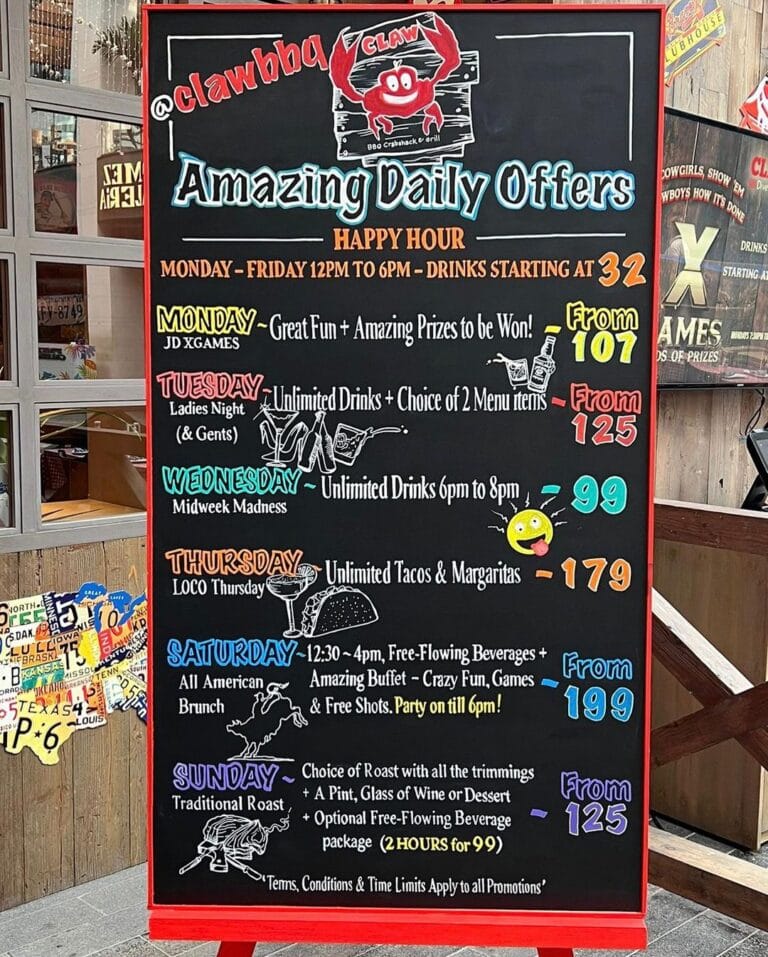 @clawbbq
CLAW
BBQ Crabshack & Grill
Amazing Daily Offers
HAPPY HOUR
MONDAY – FRIDAY 12PM TO 6PM – DRINKS STARTING AT 32
MONDAY ~ Great Fun + Amazing Prizes to be Won! – From
JD XGAMES
107
TUESDAY ~ Unlimited Drinks + Choice of 2 Menu items – From
Ladies Night
(& Gents)
125
WEDNESDAY ~ Unlimited Drinks 6pm to 8pm – 99
Midweek Madness
THURSDAY ~ Unlimited Tacos & Margaritas – 179
LOCO Thursday
SATURDAY ~ 12:30 ~ 4pm, Free-Flowing Beverages +
All American
Brunch
Amazing Buffet – Crazy Fun, Games
& Free Shots. Party on till 6pm!
– From
199
SUNDAY ~ Choice of Roast with all the trimmings
Traditional Roast
+ A Pint, Glass of Wine or Dessert
+ Optional Free-Flowing Beverage
package (2 HOURS for 99)
– From
125
'Terms, Conditions & Time Limits Apply to all Promotions'
COWGIRLS, SHOW 'EM
COWBOYS HOW IT'S DONE
X
AMES
DS OF PRIZES
DRINKS
STARTING AT
CLUBHOUSE
GREAT LAKES
TEXAS
KANSAS
IOWA
TENN
LOUIS
P*6